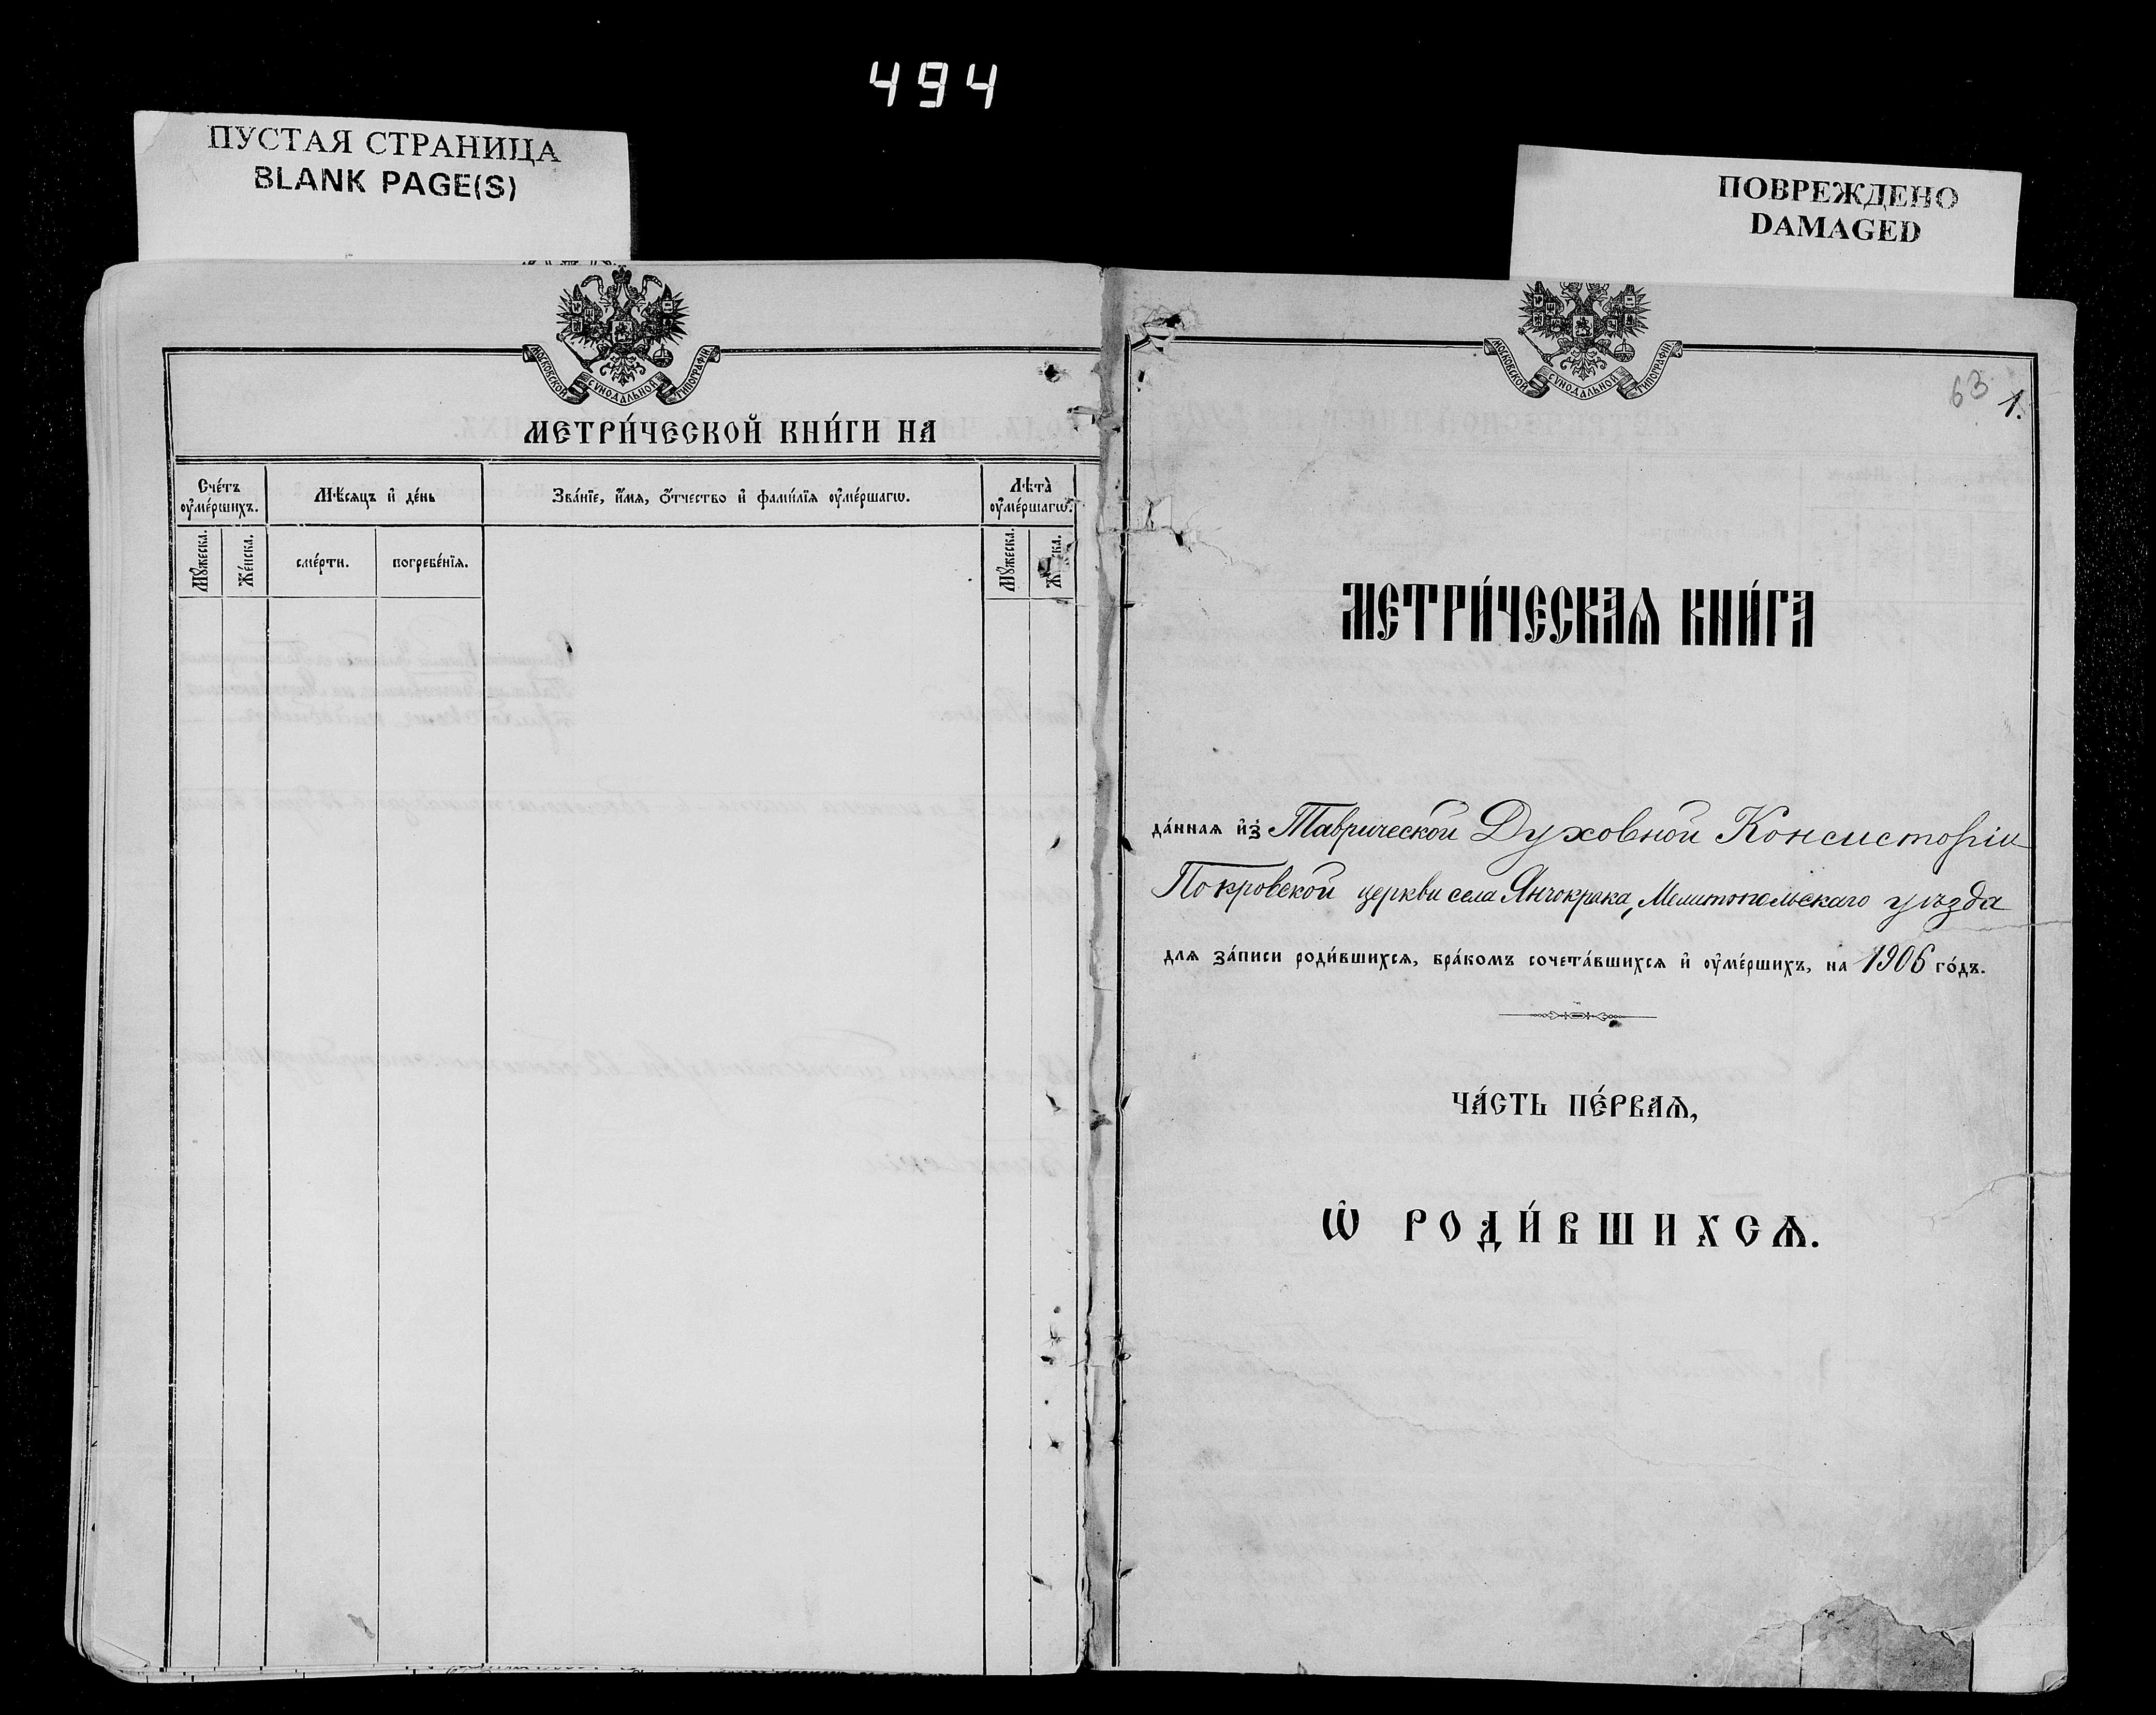 494
ПУСТАЯ СТРАНИЦА
BLANK PAGE(S)
ПОВРЕЖДЕНО
DAMAGED
МОСКОВСКОЙ СѴНОДАЛЬНОЙ ТИПОГРАФІИ
МЕТРИ́ЧЕСКОЙ КНИ́ГИ НА
Сче́тъ ᲂу҆ме́ршихъ.
Мѣ́сяцъ и҆ де́нь
Зва́нїе, и҆́мя, ѻ҆́тчество и҆ фами́лїя ᲂу҆ме́ршагѡ.
Лѣта̀ ᲂу҆ме́ршагѡ.
Мꙋ́жеска.
Же́нска.
сме́рти.
погребе́нїя.
Мꙋ́жеска.
МОСКОВСКОЙ СѴНОДАЛЬНОЙ ТИПОГРАФІИ
63 1.
МЕТРИ́ЧЕСКАѦ КНИ́ГА
да́нная и҆з̾ Таврической Духовной Консисторіи
Покровской церкви села Янчокрака, Мелитопольскаго уѣзда
для за́писи роди́вшихся, бра́комъ сочета́вшихся и҆ ᲂу҆ме́ршихъ, на 1906 го́дъ.
ЧА́СТЬ ПЕ́РВАѦ,
Ѽ РОДИ́ВШИХСѦ.